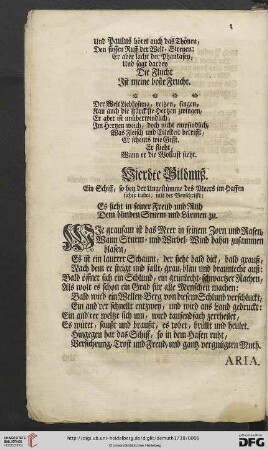 Und Paulus höret auch das Thönen,
Den süssen Ruff der Welt-Sirenen:
Er aber lacht der Phantasen,
Und sagt darbey
Die Flucht
Ist meine beste Frucht.
Der Welt Liebkosung, reitzen, singen,
Kan auch die stärckste Hertzen zwingen,
Er aber ist unüberwindlich,
Im Hertzen weich, doch nicht empfindlich,
Was Fleisch und Eitelkeit betrifft,
Er scheuts wie Gifft,
Er fliehet,
Wann er die Wollust siehet.
Vierdte Bildnuß.
Ein Schiff, so bey der Ungestümme des Meers im Haffen
sicher stehet, mit der Beyschrifft:
Es sieht in seiner Freud und Ruh
Dem blinden Sturm und Lärmen zu.
WIe grausam ist das Meer in seinem Zorn und Rasen,
Wann Sturm- und Wirbel-Wind dahin zusammen
blasen,
Es ist ein lauterer Schaum, der siehe bald dick, bald grauß,
Nach dem er steige und falle, grau, blau und braunlecht auß:
Bald öffnet sich ein Schlund, ein grunlecht-schwartzer Rachen,
Als wolt es schon ein Grab für alle Menschen machen:
Bald wird ein Wellen-Berg von desem Schlund verschluckt,
Ein anderer schnell entzwey, und wird ans Land gedruckt:
Ein anderer weltzt sich um, wird tausendfach zertheilet,
Es wütet, saußt und braußt, es tobet, brüllt und heulet.
Hingegen hat das Schiff, so in dem Hafen ruht,
Versicherung, Trost und Freud, und gantz vergnügten Muth.
ARIA.
http://digi.ub.uni-heidelberg.de/diglit/demuth1738/0006
© Universitätsbibliothek Heidelberg
UNIVERSITÄTS-
BIBLIOTHEK
HEIDELBERG
gefördert durch die
DFG